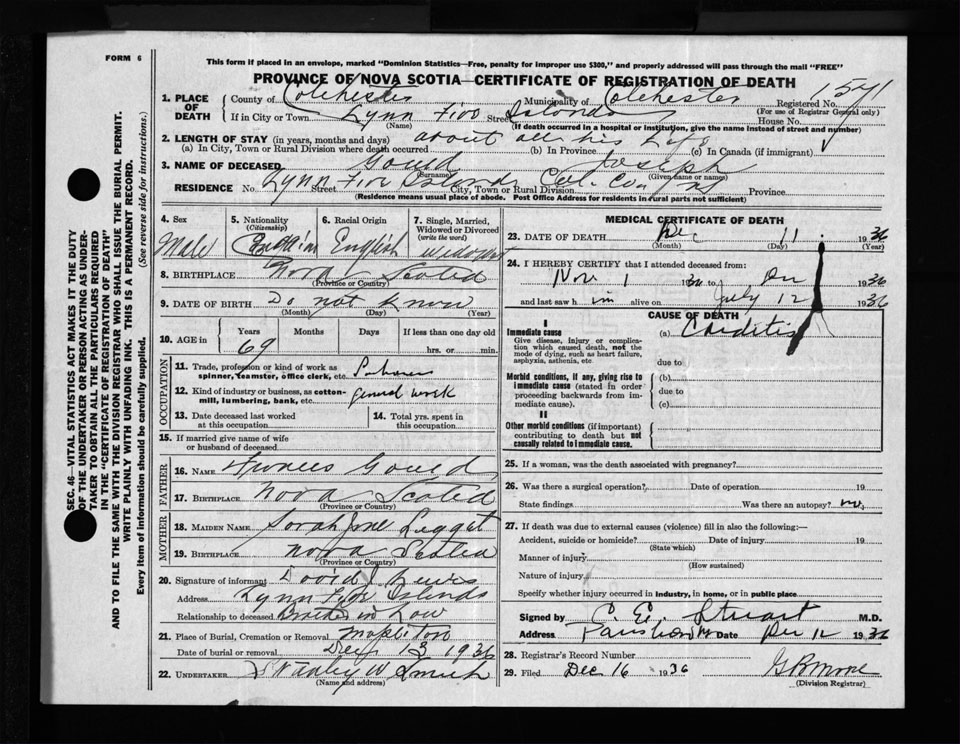 FORM 6
This form if placed in an envelope, marked "Dominion Statistics—Free, penalty for improper use $300," and properly addressed will pass through the mail "FREE"
PROVINCE OF NOVA SCOTIA—CERTIFICATE OF REGISTRATION OF DEATH
1. PLACE OF DEATH County of Colchester Municipality of Colchester Registered No. 1541
(For use of Registrar General only)
If in City or Town Lynn Five Street Islands House No.
(Name) (If death occurred in a hospital or institution, give the name instead of street and number)
2. LENGTH OF STAY (in years, months and days) about all his life
(a) In City, Town or Rural Division where death occurred (b) In Province (c) In Canada (if immigrant)
3. NAME OF DECEASED Gould Joseph
(Surname) (Given name or names)
RESIDENCE No. Lynn Street Five Islands City, Town or Rural Division Col. Co. NS Province
(Residence means usual place of abode. Post Office Address for residents in rural parts not sufficient)
4. Sex Male
5. Nationality (Citizenship)
6. Racial Origin English
7. Single, Married, Widowed or Divorced (write the word) Widower
8. BIRTHPLACE Nova Scotia
(Province or Country)
9. DATE OF BIRTH Do not know
(Month) (Day) (Year)
10. AGE in Years Months Days If less than one day old
69 hrs. or min.
OCCUPATION
11. Trade, profession or kind of work as spinner, teamster, office clerk, etc. Labourer
12. Kind of industry or business, as cotton-mill, lumbering, bank, etc. general work
13. Date deceased last worked at this occupation
14. Total yrs. spent in this occupation
15. If married give name of wife or husband of deceased
FATHER
16. NAME Gould
17. BIRTHPLACE Nova Scotia
(Province or Country)
MOTHER
18. MAIDEN NAME Sarah Jane Legget
19. BIRTHPLACE Nova Scotia
(Province or Country)
20. Signature of informant David Lewis
Address Lynn Five Islands
Relationship to deceased Brother in Law
21. Place of Burial, Cremation or Removal Mapleton
Date of burial or removal Dec 13 1936
22. UNDERTAKER Stanley W Smith
(Name and address)
MEDICAL CERTIFICATE OF DEATH
23. DATE OF DEATH Dec 11 1936
(Month) (Day) (Year)
24. I HEREBY CERTIFY that I attended deceased from:
Nov 1 1936 to 1936
and last saw him alive on July 12 1936
CAUSE OF DEATH
I
Immediate cause
Give disease, injury or complication which caused death, not the mode of dying, such as heart failure, asphyxia, asthenia, etc.
(a) Carditis
due to
Morbid conditions, if any, giving rise to immediate cause (stated in order proceeding backwards from immediate cause).
(b)
due to
(c)
II
Other morbid conditions (if important) contributing to death but not causally related to immediate cause.
25. If a woman, was the death associated with pregnancy?
26. Was there a surgical operation? Date of operation 19
State findings Was there an autopsy? no.
27. If death was due to external causes (violence) fill in also the following:—
Accident, suicide or homicide? Date of injury 19
(State which)
Manner of injury
(How sustained)
Nature of injury
Specify whether injury occurred in industry, in home, or in public place
Signed by C. E. Stuart M.D.
Address Parrsboro Date Dec 12 1936
28. Registrar's Record Number
29. Filed Dec 16 1936
(Division Registrar)
SEC. 46—VITAL STATISTICS ACT MAKES IT THE DUTY
OF THE UNDERTAKER OR PERSON ACTING AS UNDER-
TAKER TO OBTAIN ALL THE PARTICULARS REQUIRED
IN THE "CERTIFICATE OF REGISTRATION OF DEATH"
AND TO FILE THE SAME WITH THE DIVISION REGISTRAR WHO SHALL ISSUE THE BURIAL PERMIT.
WRITE PLAINLY WITH UNFADING INK. THIS IS A PERMANENT RECORD.
Every item of information should be carefully supplied. (See reverse side for instructions.)